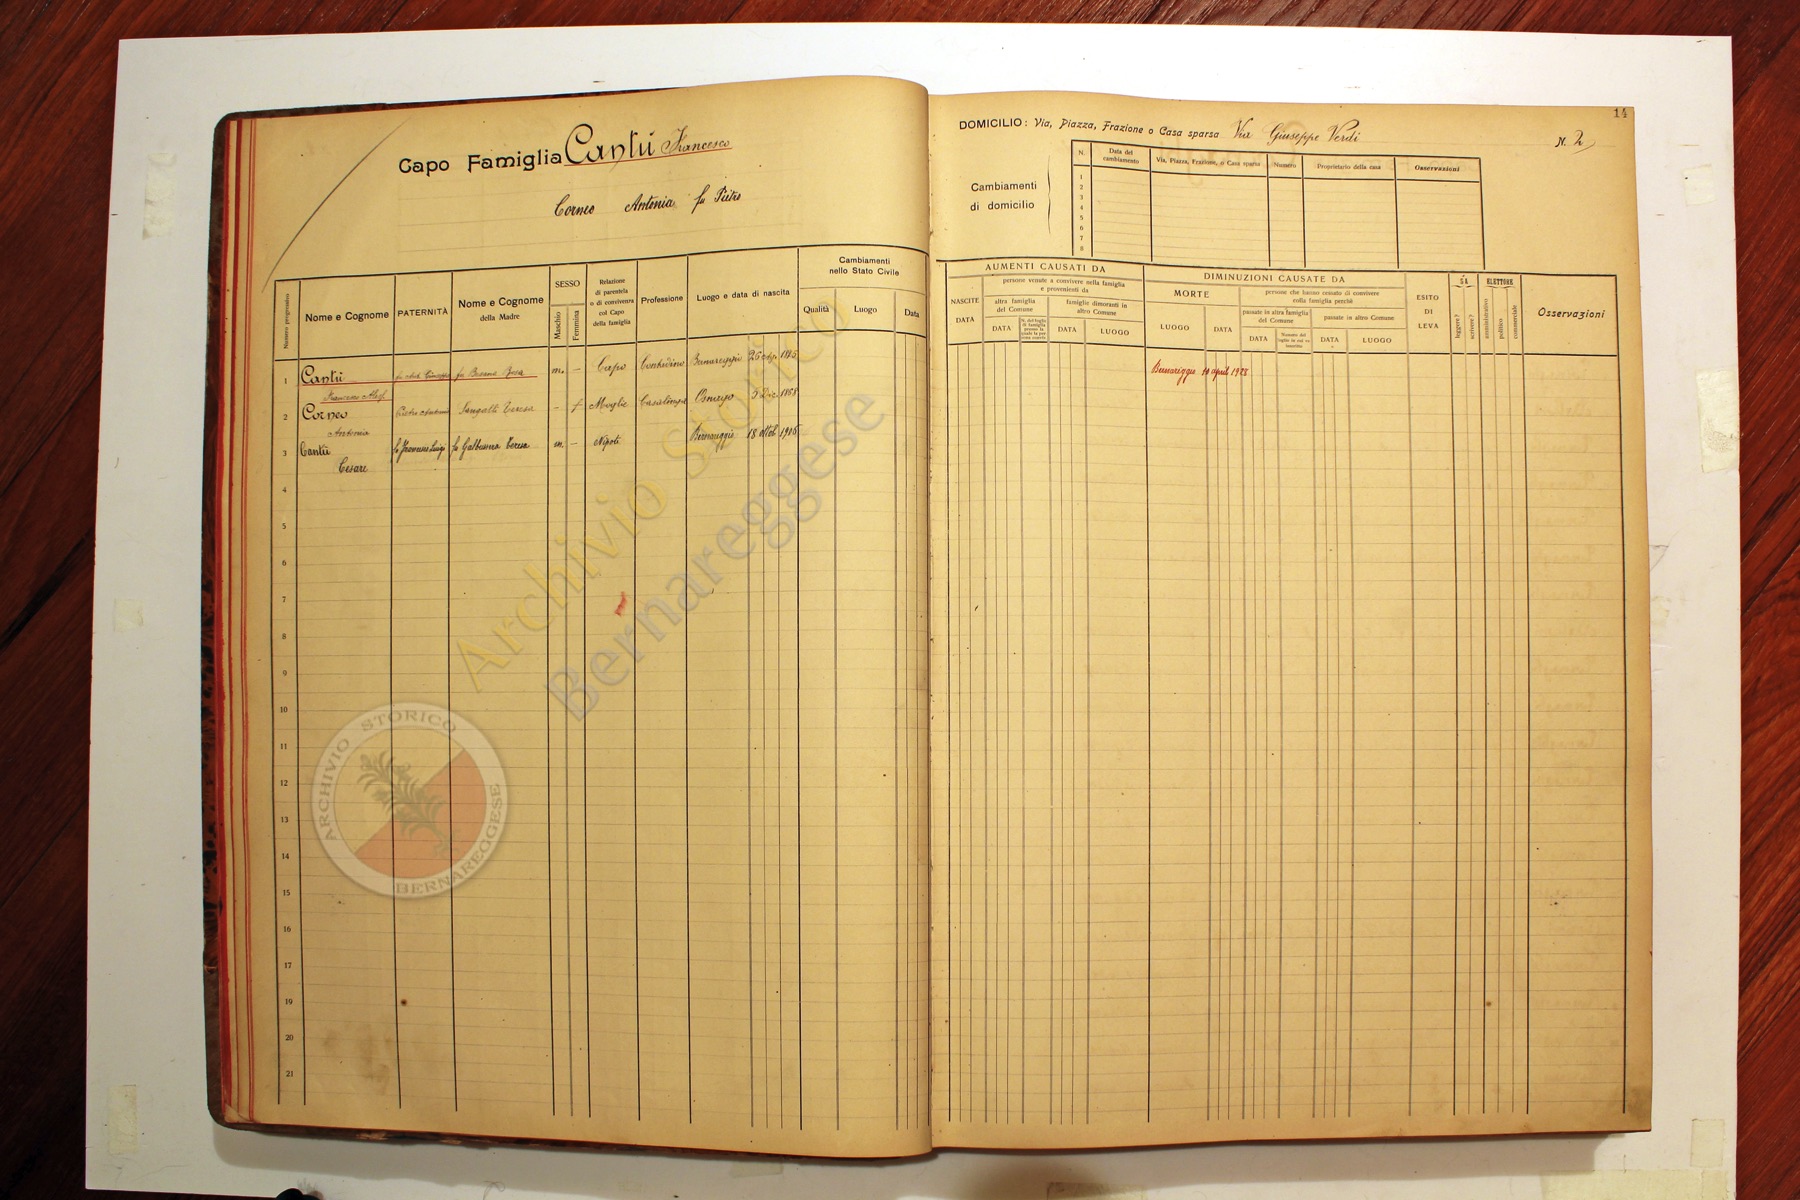 Capo Famiglia Cantù Francesco
Corneo Antonia fu Pietro
Numero progressivo
Nome e Cognome
PATERNITÀ
Nome e Cognome
della Madre
SESSO
Maschio
Femmina
Relazione
di parentela
o di convivenza
col Capo
della famiglia
Professione
Luogo e data di nascita
Cambiamenti
nello Stato Civile
Qualità
Luogo
Data
1 Cantù fu Besana Rosa m. – Capo Contadino Bernareggio 26
Francesco
2 Corneo Pietro Sangalli Teresa – f Moglie Casalinga Osnago 1868
Antonia
3 Cantù fu Francesco Luigi fu Galbussera Teresa m. – Nipote Bernareggio 18 Ottob 1906
Cesare
4
5
6
7
8
9
10
11
12
13
14
15
16
17
18
19
20
21
14
DOMICILIO: Via, Piazza, Frazione o Casa sparsa Via Giuseppe Verdi N. 2
Cambiamenti
di domicilio
N.
Data del
cambiamento
Via, Piazza, Frazione, o Casa sparsa
Numero
Proprietario della casa
Osservazioni
1
2
3
4
5
6
7
8
AUMENTI CAUSATI DA
NASCITE
DATA
persone venute a convivere nella famiglia
e provenienti da
altra famiglia
del Comune
DATA
famiglie dimoranti in
altro Comune
DATA
LUOGO
DIMINUZIONI CAUSATE DA
MORTE
LUOGO
DATA
persone che hanno cessato di convivere
colla famiglia perchè
passate in altra famiglia
del Comune
DATA
passate in altro Comune
DATA
LUOGO
ESITO
DI
LEVA
SA
leggere?
scrivere?
ELETTORE
amministrativo
politico
commerciale
Osservazioni
Bernareggio 10 april 1928
Archivio Storico
Bernareggese
ARCHIVIO STORICO
BERNAREGGESE